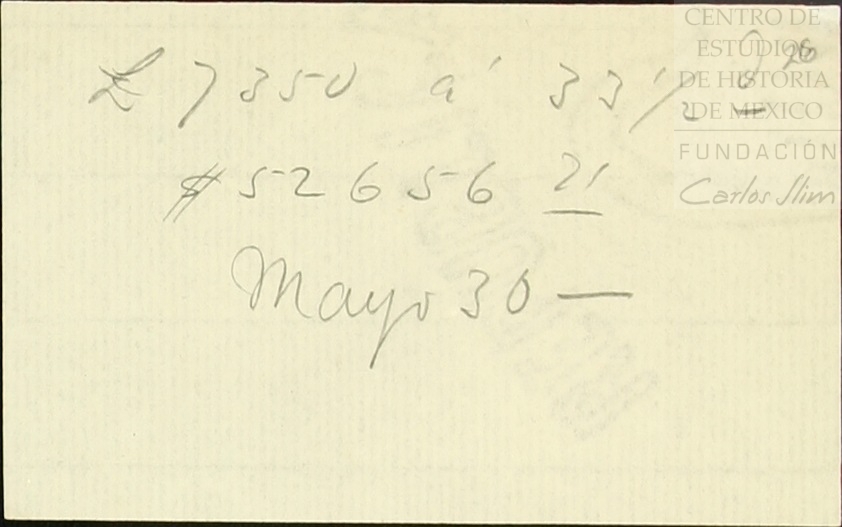 £ 7350 a' 33 1/2 d
$ 52656 21
Mayo 30 —
CENTRO DE
ESTUDIOS
DE HISTORIA
DE MEXICO
FUNDACIÓN
Carlos Slim